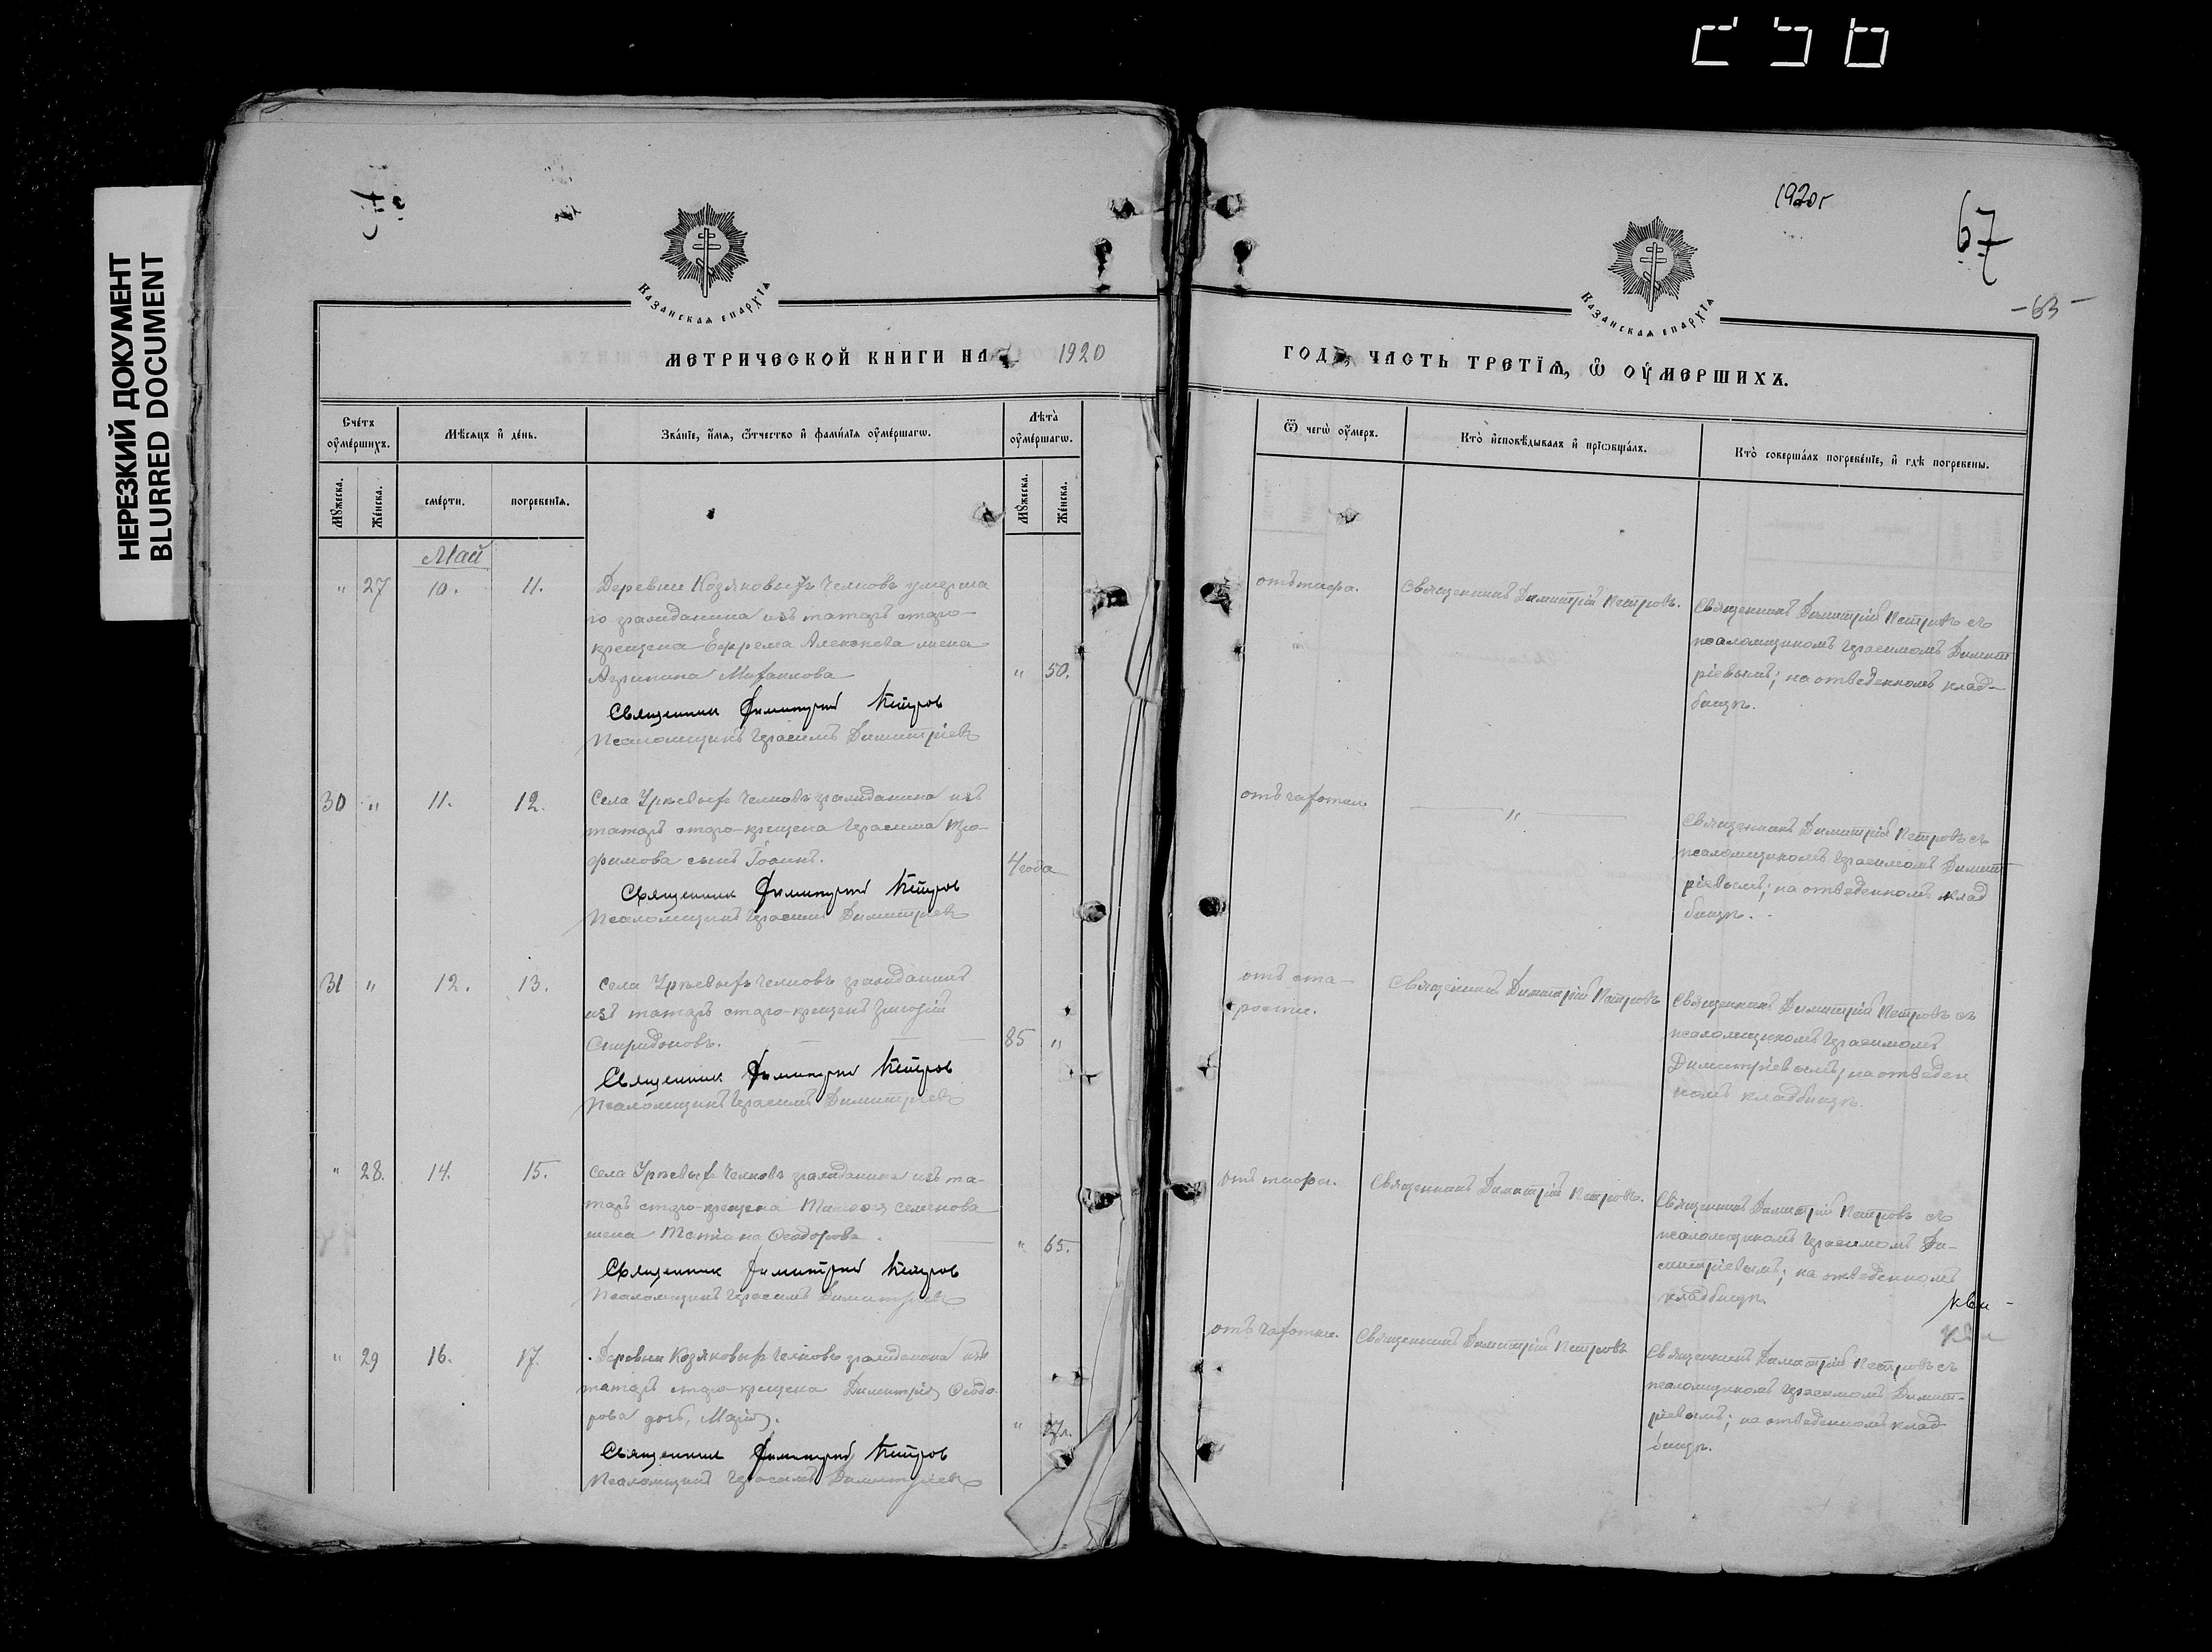 НЕРЕЗКИЙ ДОКУМЕНТ
BLURRED DOCUMENT
1920г
67
-63-
Казанская епархія
Казанская епархія
МЕТРИЧЕСКОЙ КНИГИ НА 1920
ГОДЪ, ЧАСТЬ ТРЕТІЯ, Ѿ ОУМЕРШИХЪ.
Счетъ оумершихъ.
Мѣсяцъ и день.
Званіе, имя, отчество и фамилія оумершаго.
Лѣта оумершаго.
Мужеска.
Женска.
смерти.
погребенія.
Мужеска.
Женска.
Ѿ чего оумеръ.
Кто исповѣдывалъ и пріобщалъ.
Кто совершалъ погребеніе, и гдѣ погребены.
Май
" 27 10. 11.
Деревни Козяковыхъ Челновъ умерша
го гражданина изъ татаръ старо-
крещена Ефрема Алексѣева жена
Агрипина
" 50.
Священник Димитрий Петров
Псаломщикъ Герасимъ Димитріевъ
отъ тифа.
Священникъ Димитрій Петровъ.
Священникъ Димитрій Петровъ съ
псаломщикомъ Герасимомъ Димит
ріевымъ; на отведенномъ клад-
бищѣ.
30 " 11. 12.
Села Урѣевыхъ Челновъ гражданина изъ
татаръ старо-крещена Герасима Тро-
фимова сынъ Іоаннъ.
4 года
Священник Димитрий Петров
Псаломщикъ Герасимъ Димитріевъ
отъ чахотки.
"
Священникъ Димитрій Петровъ съ
псаломщикомъ Герасимомъ Димит
ріевымъ; на отведенномъ клад
бищѣ.
31 " 12. 13.
Села Урѣевыхъ Челновъ гражданинъ
изъ татаръ старо-крещенъ Григорій
Спиридоновъ.
85 "
Священник Димитрий Петров
Псаломщикъ Герасимъ Димитріевъ
отъ ста-
рости.
Священникъ Димитрій Петровъ
Священникъ Димитрій Петровъ съ
псаломщикомъ Герасимомъ
Димитріевымъ; на отведен
номъ кладбищѣ.
" 28. 14. 15.
Села Урѣевыхъ Челновъ гражданина изъ та-
таръ старо-крещена Матѳея Семенова
жена Татіана Ѳеодорова.
" 65.
Священник Димитрий Петров
Псаломщикъ Герасимъ Димитріевъ
отъ тифа.
Священникъ Димитрій Петровъ.
Священникъ Димитрій Петровъ съ
псаломщикомъ Герасимомъ Ди-
митріевымъ; на отведенномъ
кладбищѣ.
" 29 16. 17.
Деревни Козяковыхъ Челновъ гражданина изъ
татаръ старо-крещена Димитрія Ѳеодо-
рова дочь, Марія.
"
Священник Димитрий Петров
Псаломщикъ Герасимъ Димитріевъ
отъ чахотки.
Священникъ Димитрій Петровъ
Священникъ Димитрій Петровъ съ
псаломщикомъ Герасимомъ Димит-
ріевымъ; на отведенномъ клад
бищѣ.